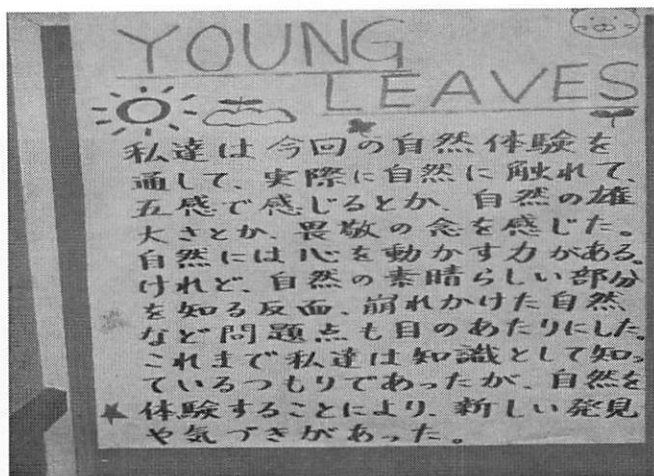 YOUNG
LEAVES
私達は今回の自然体験を
通して、実際に自然に触れて、
五感で感じるとか、自然の雄
大さとか、畏敬の念を感じた。
自然には心を動かす力がある。
けれど、自然の素晴らしい部分
を知る反面、崩れかけた自然
など問題点も目のあたりにした。
これまで私達は知識として知っ
ているつもりであったが、自然を
体験することにより、新しい発見
や気づきがあった。